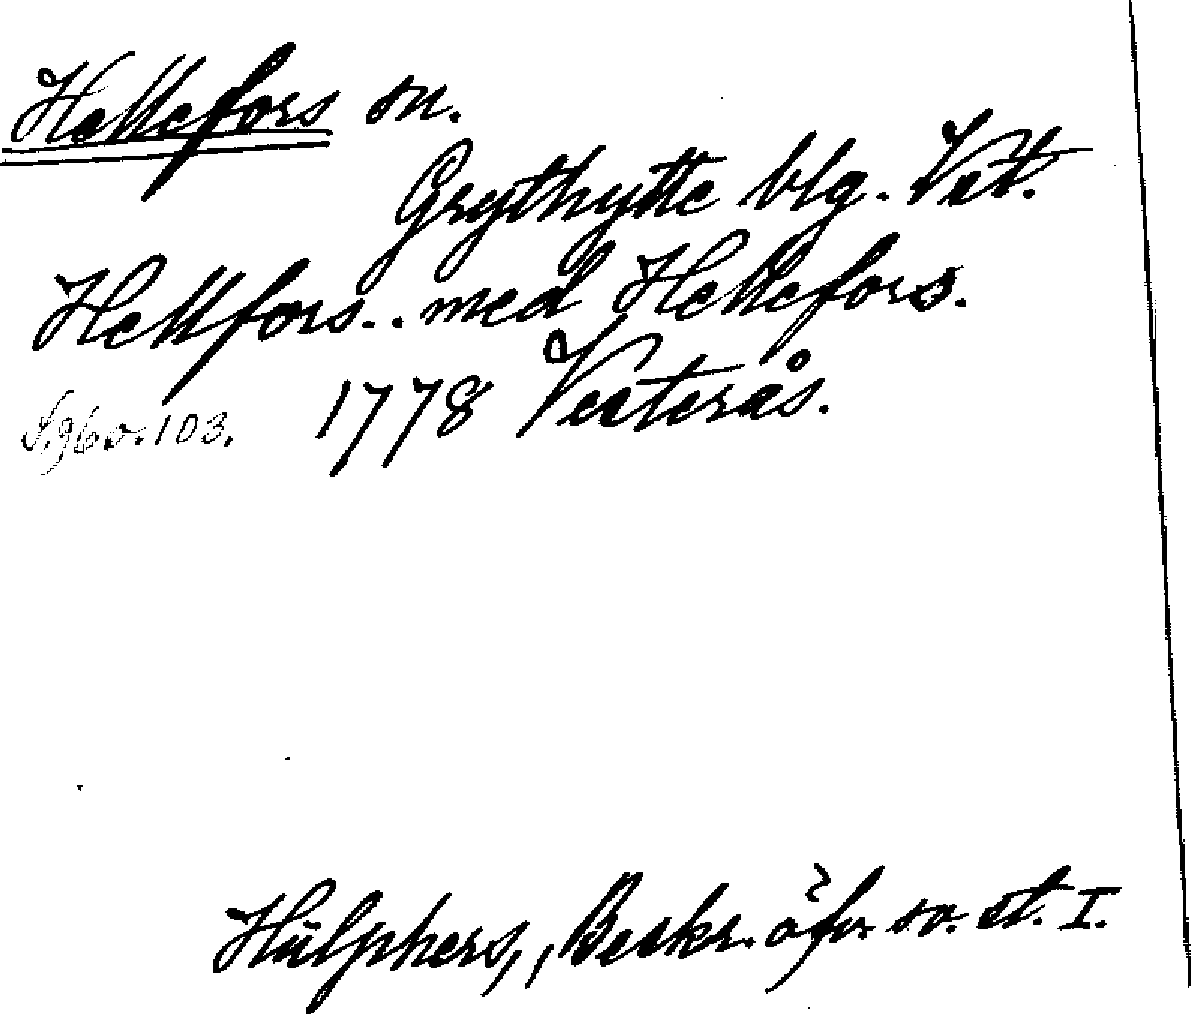 Hellefors sn.
Grythytte blg. Vst.
Hellfors.. med Hellefors.
1778 Vesterås.
S. 960. 103.
Hülphers, Beskr. öfv. sv. st. I.